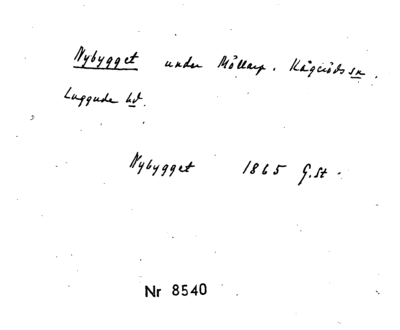 Nybygget under Möllarp. Kågeröds sn.
Luggude hd.
Nybygget 1865 G.St.
Nr 8540